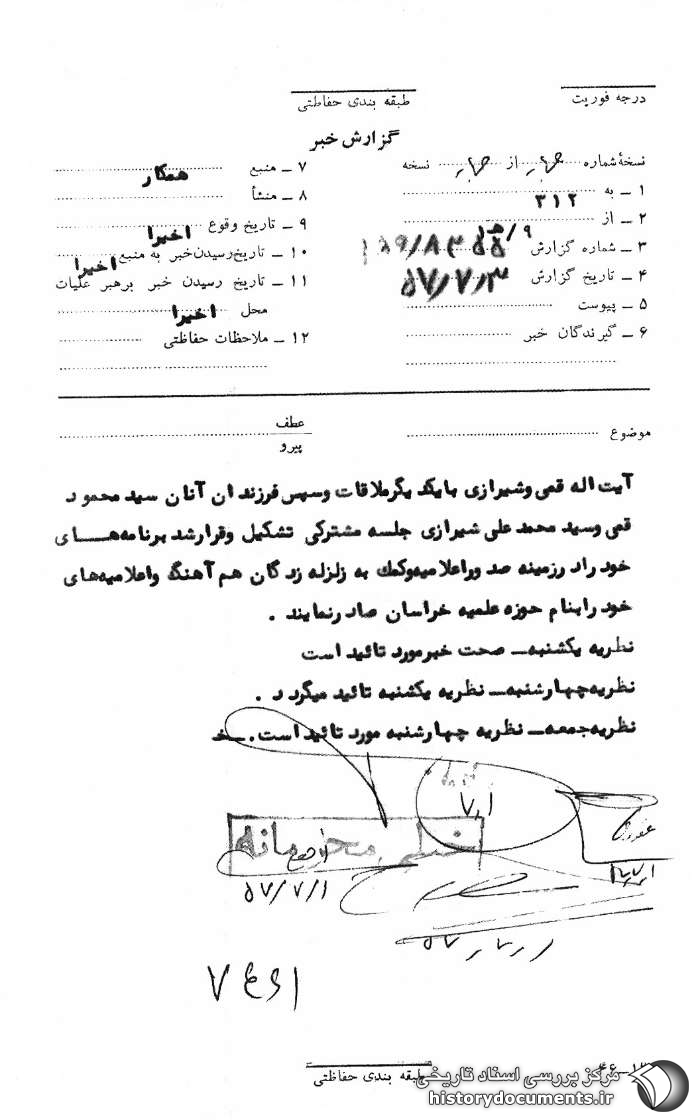 درجه فوریت
طبقه بندی حفاظتی
گزارش خبر
نسخهٔ شماره از نسخه
۱ ـ به ۳۱۲
۲ ـ از
۳ ـ شماره گزارش
۴ ـ تاریخ گزارش ۵۷/۷/۳
۵ ـ پیوست
۶ ـ گیرندگان خبر
۷ ـ منبع همکار
۸ ـ منشأ
۹ ـ تاریخ وقوع اخیرا
۱۰ ـ تاریخ رسیدن خبر به منبع اخیرا
۱۱ ـ تاریخ رسیدن خبر برهبر عملیات
محل اخیرا
۱۲ ـ ملاحظات حفاظتی
موضوع
عطف
پیرو
آیت اله قمی وشیرازی بایکدیگرملاقات وسپس فرزندان آنان سید محمود
قمی وسید محمد علی شیرازی جلسه مشترکی تشکیل وقرارشد برنامه‌های
خود رادرزمینه صدوراعلامیه‌وکمک به زلزله زدگان هم آهنگ واعلامیه‌های
خود رابنام حوزه علمیه خراسان صادرنمایند .
نظریه یکشنبه ـ صحت خبرمورد تائید است
نظریه‌چهارشنبه ـ نظریه یکشنبه تائید میگردد .
نظریه‌جمعه ـ نظریه چهارشنبه مورد تائید است . خ
خیلی محرمانه
۵۷/۷/۱
طبقه بندی حفاظتی
مرکز بررسی اسناد تاریخی
historydocuments.ir